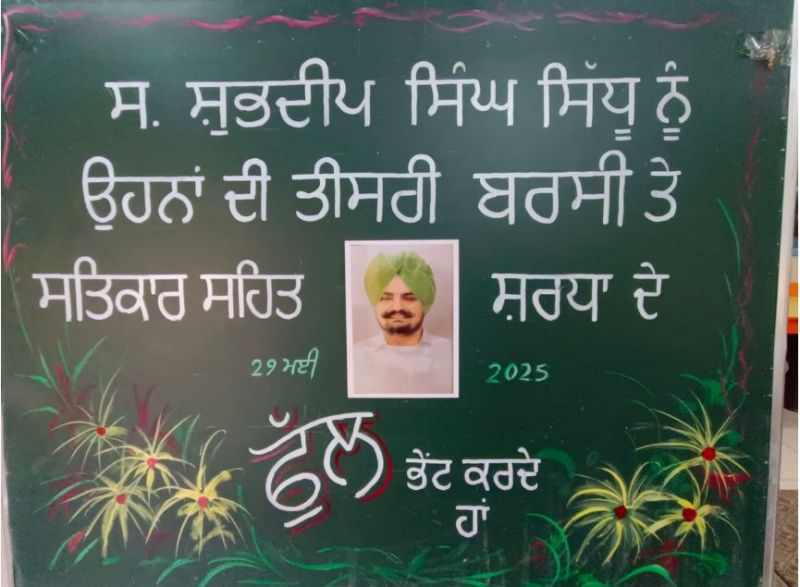 ਸ. ਸ਼ੁਭਦੀਪ ਸਿੰਘ ਸਿੱਧੂ ਨੂੰ
ਉਹਨਾਂ ਦੀ ਤੀਸਰੀ ਬਰਸੀ ਤੇ
ਸਤਿਕਾਰ ਸਹਿਤ ਸ਼ਰਧਾ ਦੇ
29 ਮਈ 2025
ਫੁੱਲ ਭੇਂਟ ਕਰਦੇ
ਹਾਂ